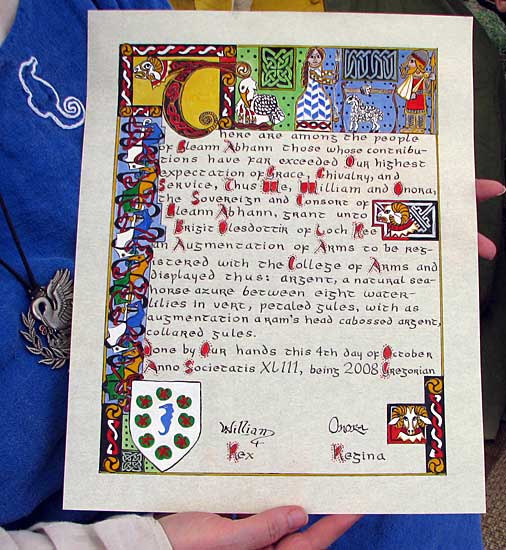 There are among the people
of Gleann Abhann those whose contribu-
tions have far exceeded Our highest
expectation of Grace, Chivalry, and
Service, Thus We, William and Onora,
the Sovereign and Consort of
Gleann Abhann, grant unto
Brigit Olesdottir of Loch Ree
an Augmentation of Arms to be reg-
istered with the College of Arms and
displayed thus: argent, a natural sea-
horse azure between eight water-
lilies in vert, petaled gules, with as
augmentation a ram's head cabossed argent,
collared gules.
Done by Our hands this 4th day of October
Anno Societatis XLIII, being 2008 Gregorian
William Onora
Rex Regina